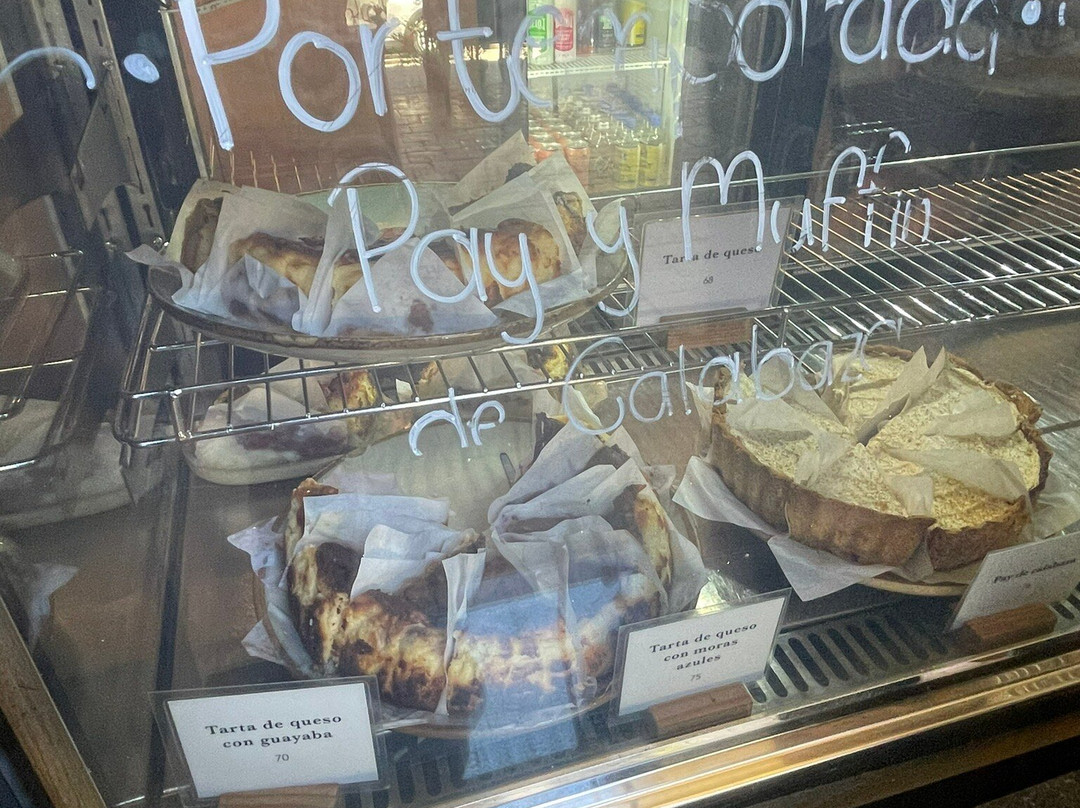 Por temporada:
Pay y Muffin
de Calabaza
Tarta de queso
68
Tarta de queso
con moras
azules
75
Pay de calabaza
Tarta de queso
con guayaba
70